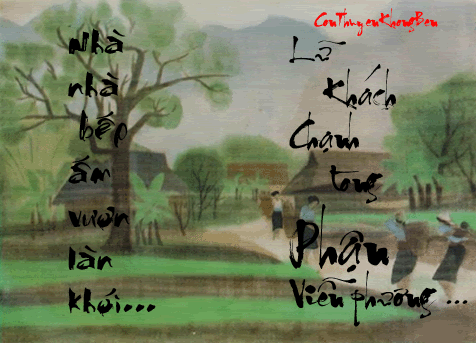 ConThuyenKhongBen
Nhà
nhà
bếp
ấm
vườn
làn
khói...
Lữ
khách
Chạnh
tong
Phận
Viễn phương ...